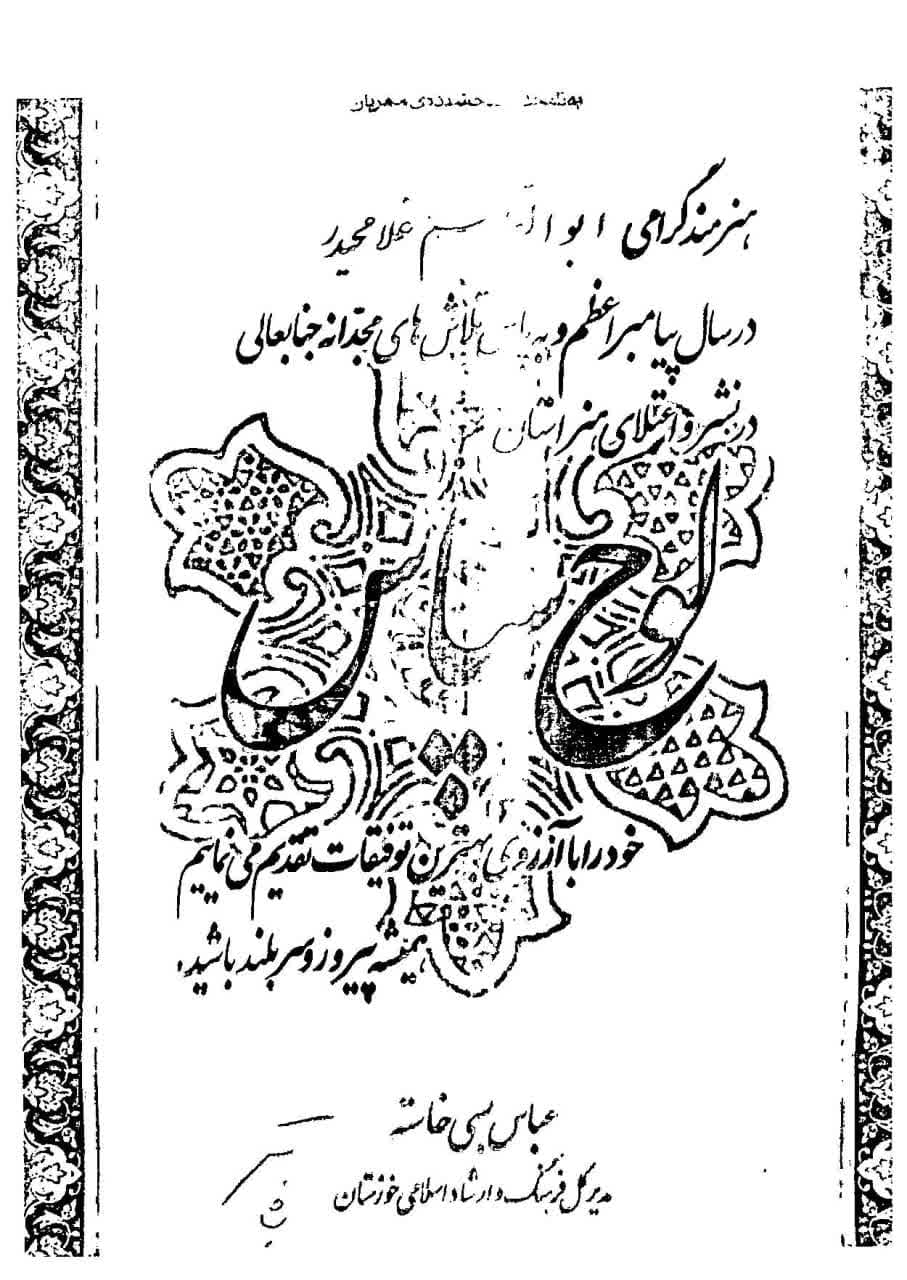 هنرمند گرامی ابوالقاسم غلامحیدر
در سال پیامبر اعظم و به پاس تلاش های مجدّانه جنابعالی
در نشر و اعتلای هنر استان
لوح سپاس
خود را با آرزوی بهترین توفیقات تقدیم می نماییم
همیشه پیروز و سربلند باشید.
عباس
مدیر کل فرهنگ و ارشاد اسلامی خوزستان